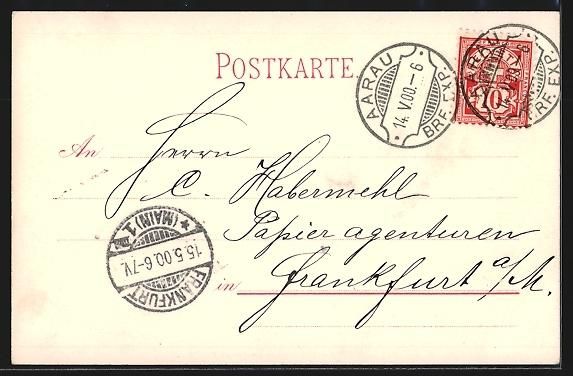 POSTKARTE
AARAU
14.V.00.-6
BRF. EXP.
10
An Herrn
C. Habermehl
Papier agenturen
in Frankfurt a/M.
* (MAIN) 1
15.5.00.6-7V.
FRANKFURT